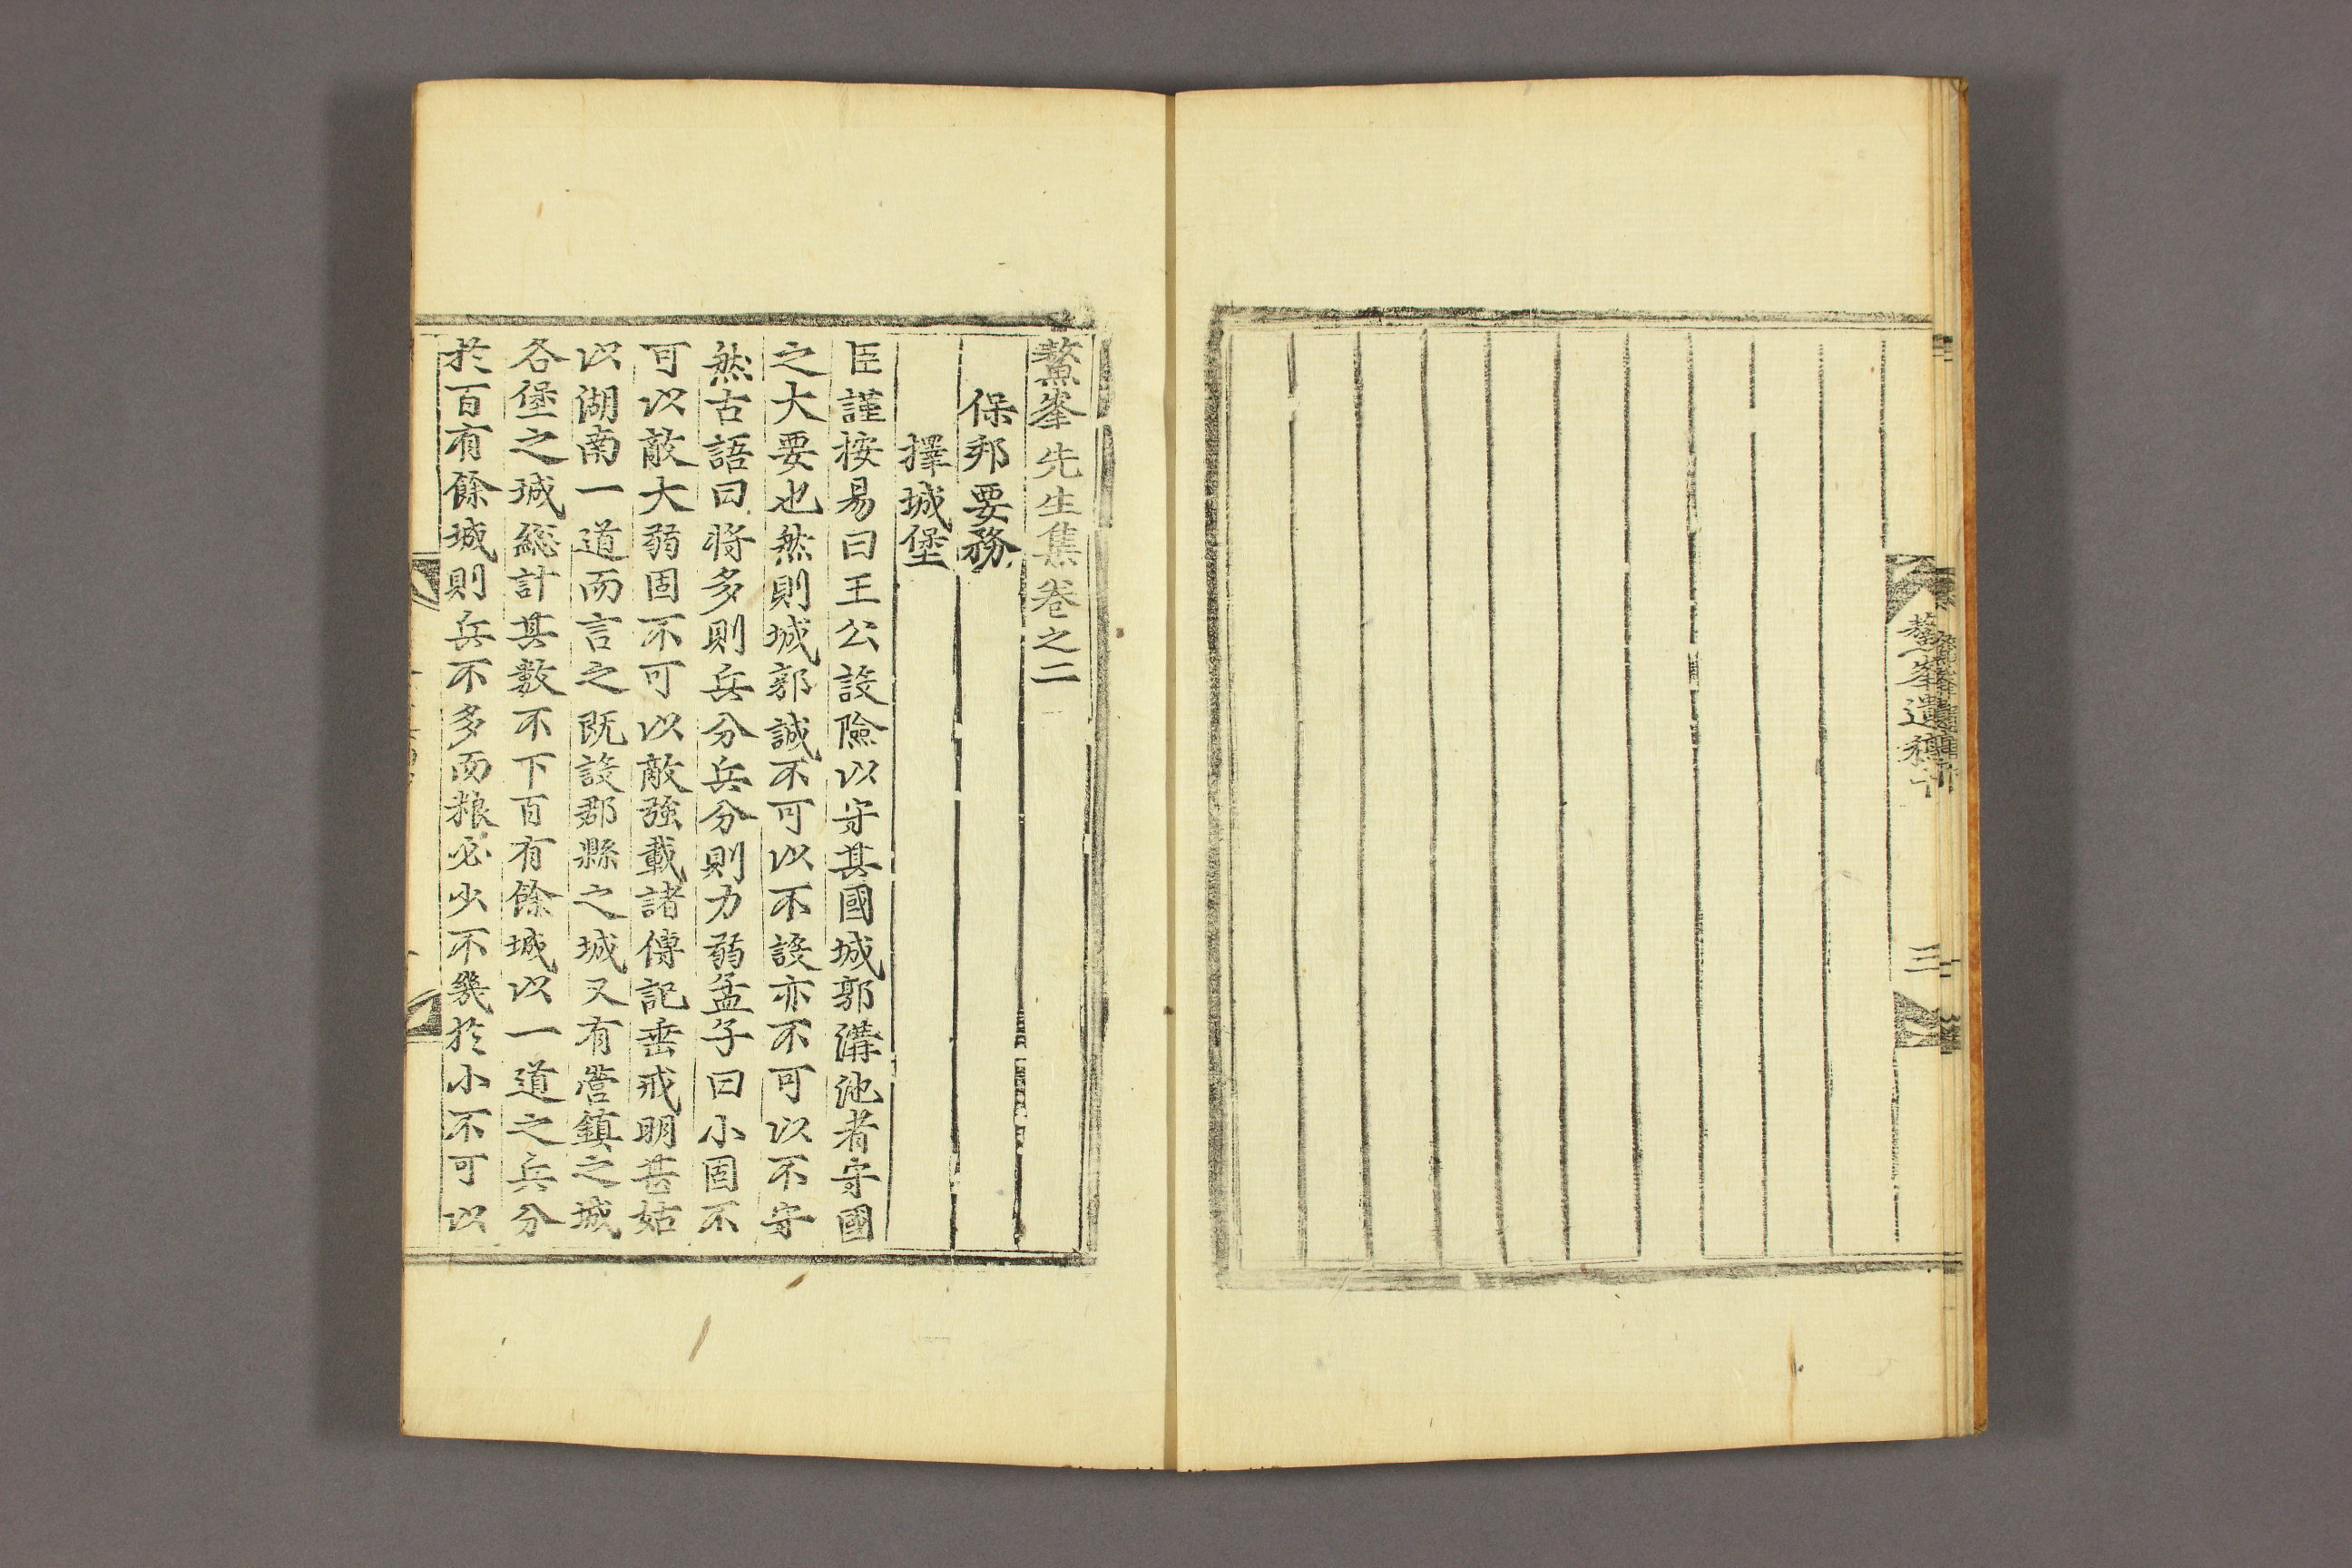 鰲峯遺稿
三
鰲峯先生集卷之二
保邦要務
擇城堡
臣謹按易曰王公設險以守其國城郭溝池者守國
之大要也然則城郭誠不可以不設亦不可以不守
然古語曰將多則兵分兵分則力弱孟子曰小固不
可以敵大弱固不可以敵强載諸傳記垂戒明甚姑
以湖南一道而言之既設郡縣之城又有營鎮之城
各堡之城総計其數不下百有餘城以一道之兵分
於百有餘城則兵不多而粮必少不幾於小不可以